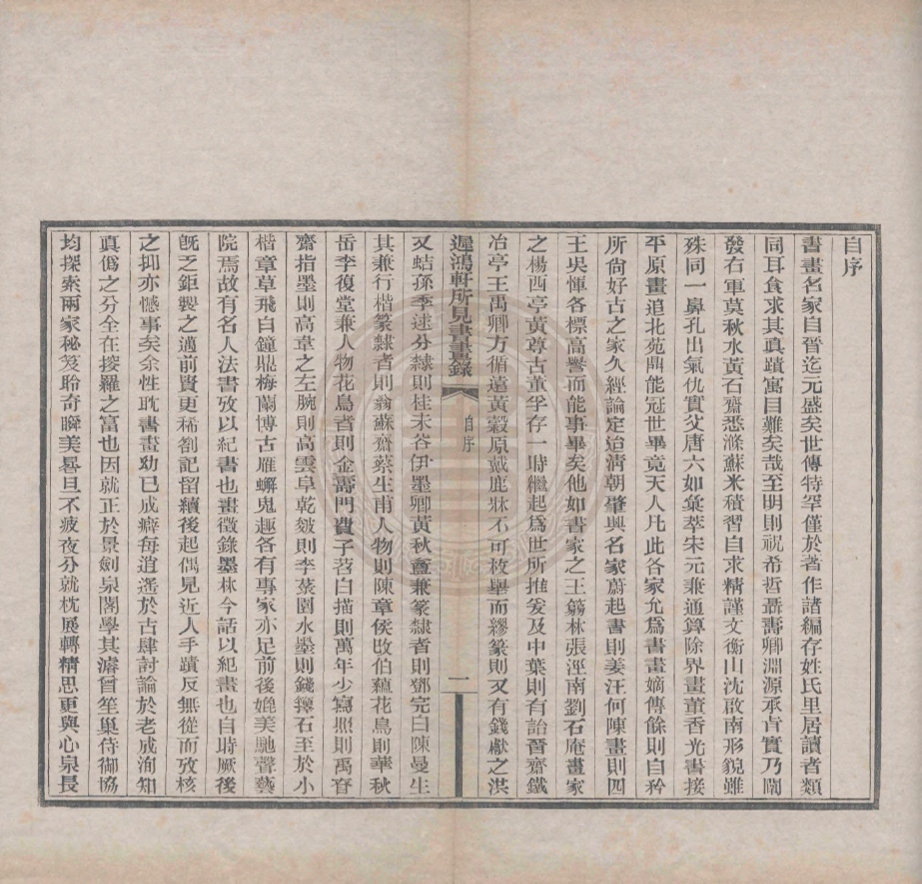 自序
書畫名家自晉迄元盛矣世傳特罕僅於著作諸編存姓氏里居讀者類
同耳食求其真蹟寓目難矣哉至明則祝希哲聶壽卿淵源承肯實乃闇
發右軍莫秋水黃石齋悉滌蘇米積習自求精謹文衡山沈啟南形貌雖
殊同一鼻孔出氣仇實父唐六如彙萃宋元兼通算除界畫董香光書接
平原畫追北苑鼎能冠世畢竟天人凡此各家允爲書畫嫡傳餘則自矜
所尚好古之家久經論定迨淸朝肇興名家蔚起書則姜汪何陳畫則四
王吳惲各標高譽而能事畢矣他如書家之王蒻林張涇南劉石庵畫家
之楊西亭黃尊古董孚存一時繼起爲世所推爰及中葉則有詒晉齋鐵
冶亭王禹卿方循遠黃穀原戴鹿牀不可枚舉而繆篆則又有錢獻之洪
遲鴻軒所見書畫錄
自序
一
又蛣孫季逑分隸則桂未谷伊墨卿黃秋盦兼篆隸者則鄧完白陳曼生
其兼行楷篆隸者則翁蘇齋蔡生甫人物則陳章侯改伯蘊花鳥則華秋
岳李復堂兼人物花鳥者則金壽門費子苕白描則萬年少寫照則禹脊
齋指墨則高韋之左腕則高雲阜乾皴則李菜園水墨則錢籜石至於小
楷章草飛白鐘鼎梅蘭博古雁蟹鬼趣各有專家亦足前後媲美馳聲藝
院焉故有名人法書攷以紀書也畫徵錄墨林今話以紀畫也自時厥後
旣乏鉅製之邁前賢更稀劄記留續後起偶見近人手蹟反無從而攷核
之抑亦憾事矣余性耽書畫幼已成癖每逍遙於古肆討論於老成洵知
真僞之分全在搜羅之富也因就正於景劍泉閣學其濬曾笙巢侍御協
均探索兩家秘笈聆奇瞬美晷旦不疲夜分就枕展轉精思更與心泉長